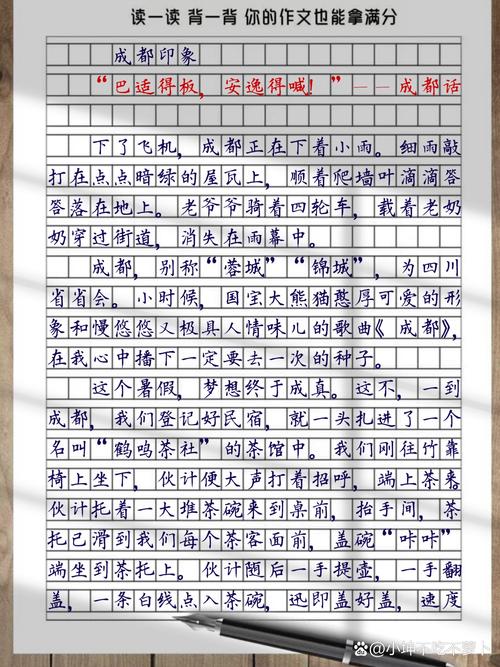 读一读 背一背 你的作文也能拿满分
成都印象
“巴适得板，安逸得喊！”——成都话
下了飞机，成都正在下着小雨。细雨敲
打在点点暗绿的屋瓦上，顺着爬墙叶滴滴答
答落在地上。老爷爷骑着四轮车，载着老奶
奶穿过街道，消失在雨幕中。
成都，别称“蓉城”“锦城”，为四川
省省会。小时候，国宝大熊猫憨厚可爱的形
象和慢悠悠又极具人情味儿的歌曲《成都》，
在我心中播下一定要去一次的种子。
这个暑假，梦想终于成真。这不，一到
成都，我们登记好民宿，就一头扎进了一个
名叫“鹤鸣茶社”的茶馆中。我们刚往竹靠
椅上坐下，伙计便大声打着招呼，端上茶来
伙计托着一大堆茶碗来到桌前，抬手间，茶
托已滑到我们每个茶客面前，盖碗“咔咔”
端坐到茶托上。伙计随后一手提壶，一手翻
盖，一条白线点入茶碗，迅即盖好盖，速度